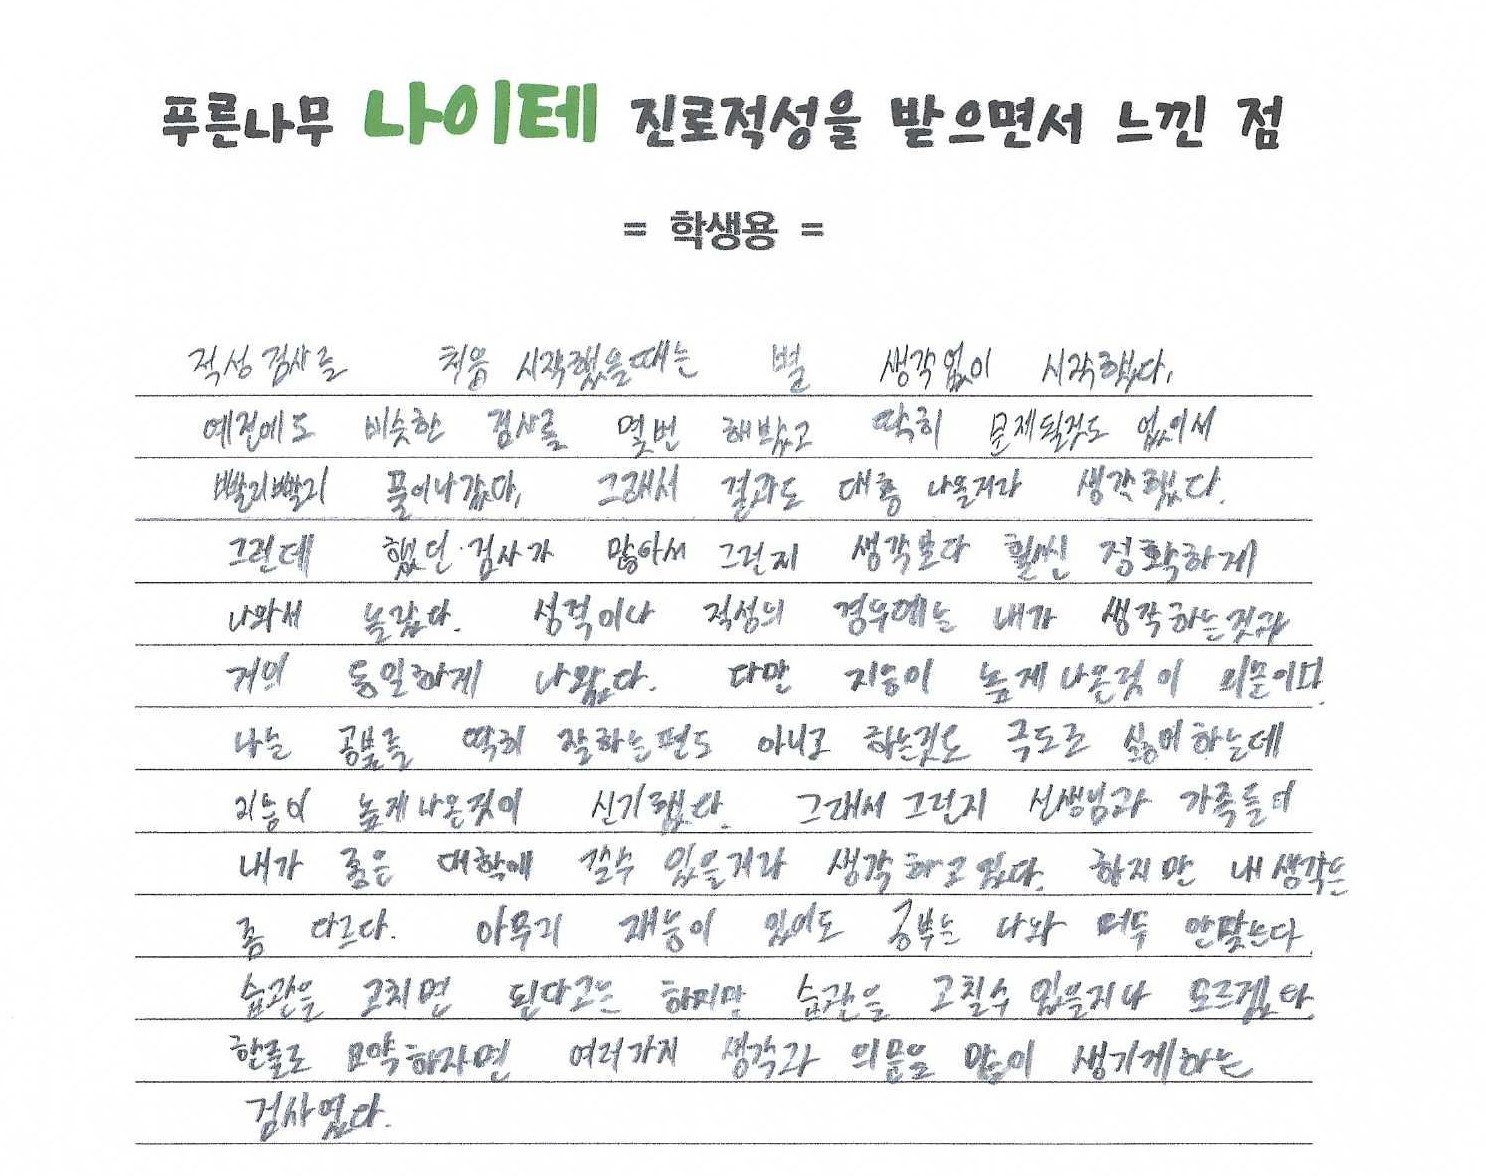 푸른나무 나이테 진로적성을 받으면서 느낀 점
= 학생용 =
적성검사를 처음 시작했을때는 별 생각없이 시작했다.
예전에도 비슷한 검사를 몇번 해봤고 딱히 문제될것도 없어서
빨리빨리 풀어나갔다. 그래서 결과도 대충 나올거라 생각했다.
그런데 했던 검사가 많아서 그런지 생각보다 훨씬 정확하게
나와서 놀랐다. 성격이나 적성의 경우에는 내가 생각하는것과
거의 동일하게 나왔다. 다만 지능이 높게 나온것이 의문이다.
나는 공부를 딱히 잘하는편도 아니고 하는것도 극도로 싫어하는데
지능이 높게나온것이 신기했다. 그래서 그런지 선생님과 가족들이
내가 좋은 대학에 갈수 있을거라 생각하고 있다. 하지만 내 생각은
좀 다르다. 아무리 재능이 있어도 공부는 나와 너무 안맞는다.
습관을 고치면 된다고는 하지만 습관을 고칠수 있을지나 모르겠다.
한줄로 요약하자면 여러가지 생각과 의문을 많이 생기게하는
검사였다.